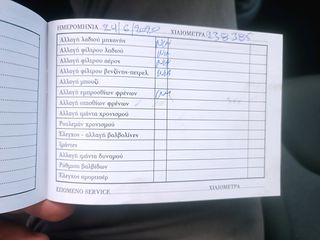 ΗΜΕΡΟΜΗΝΙΑ 24/6/2020 ΧΙΛΙΟΜΕΤΡΑ 238385
Αλλαγή λαδιού μηχανής
Αλλαγή φίλτρου λαδιού
Αλλαγή φίλτρου αέρος
Αλλαγή φίλτρου βενζίνης-πετρελ.
Αλλαγή μπουζί
Αλλαγή εμπροσθίων φρένων
Αλλαγή οπισθίων φρένων
Αλλαγή ιμάντα χρονισμού
Ρουλεμάν χρονισμού
Έλεγχος - αλλαγή βαλβολίνες
Ιμάντες
Αλλαγή ιμάντα δυναμού
Ρύθμιση βαλβίδων
Έλεγχος αμορτισέρ
ΕΠΟΜΕΝΟ SERVICE ΧΙΛΙΟΜΕΤΡΑ